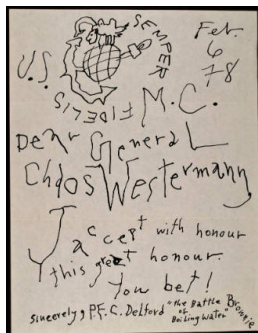 SEMPER
FIDELIS
Feb.
6
78
U.S.
M.C.
Dear General
Chaos Westermann,
I accept with honour
this great honour.
You bet!
Sincerely, P.F.C. Delford "the Battle
of
Boiling Water" Brownie